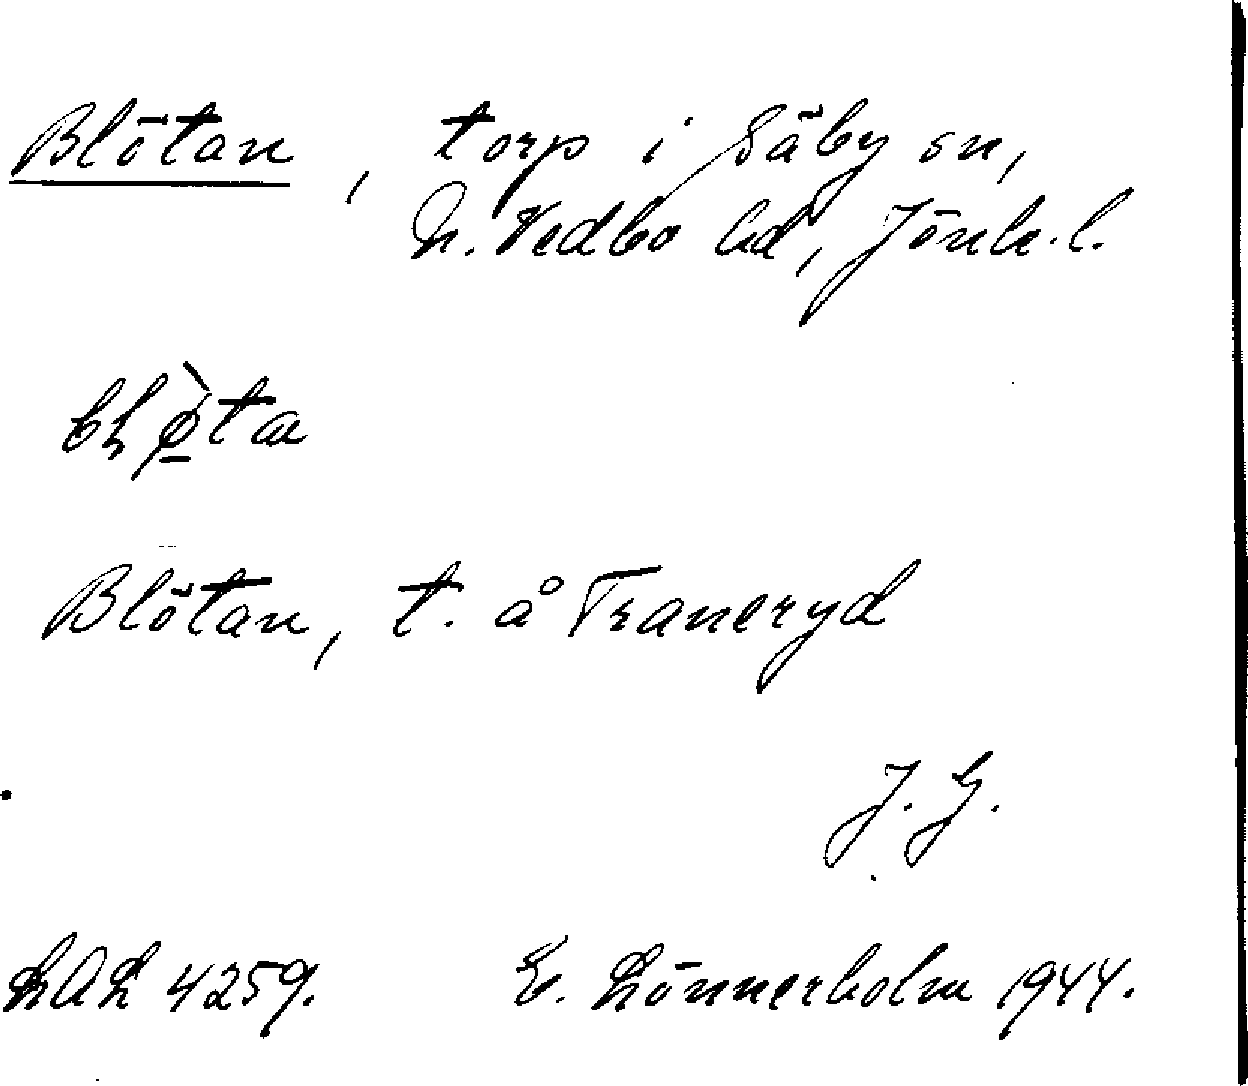 Blötan, torp i Säby sn,
N. Vedbo hd, Jönk. l.
blø̠̀ta
Blötan, t. å Traneryd
J. G.
LAL 4259. E. Lönnerholm 1944.